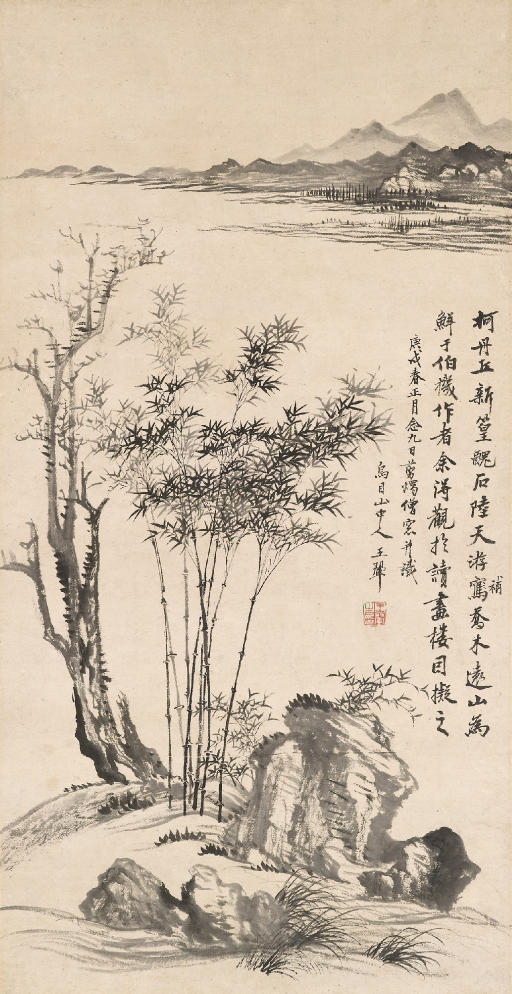 柯丹丘新篁醜石陸天游補寫喬木遠山為
鮮于伯機作者余得觀於讀畫樓因擬之
庚戌春正月念九日篝燈僧窓并識
烏目山中人王翬